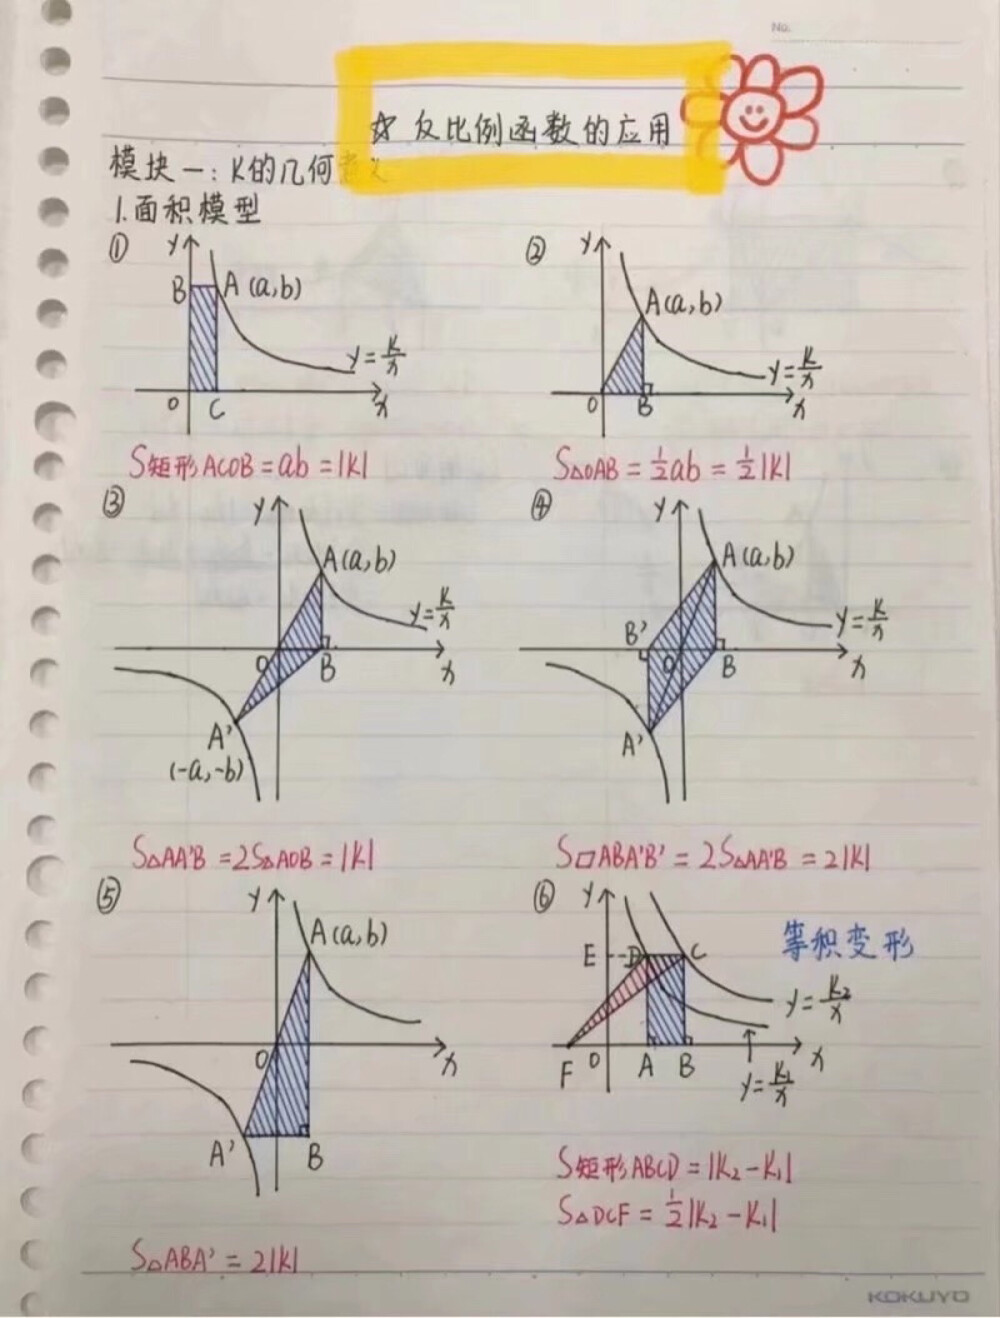 No.
☆ 反比例函数的应用
模块一: K的几何
1.面积模型
①
y
B
A (a,b)
y=k/x
O
C
x
S矩形ACOB=ab=|k|
②
y
A(a,b)
y=k/x
O
B
x
S△OAB=½ab=½|k|
③
y
A(a,b)
y=k/x
O
B
x
A'
(-a,-b)
S△AA'B=2S△AOB=|k|
④
y
A(a,b)
B'
y=k/x
O
B
x
A'
S▱ABA'B'=2S△AA'B=2|k|
⑤
y
A(a,b)
O
x
A'
B
S△ABA'=2|k|
⑥
y
等积变形
E
D
C
y=k₂/x
F
O
A
B
x
y=k₁/x
S矩形ABCD=|k₂-k₁|
S△DCF=½|k₂-k₁|
KOKUYO